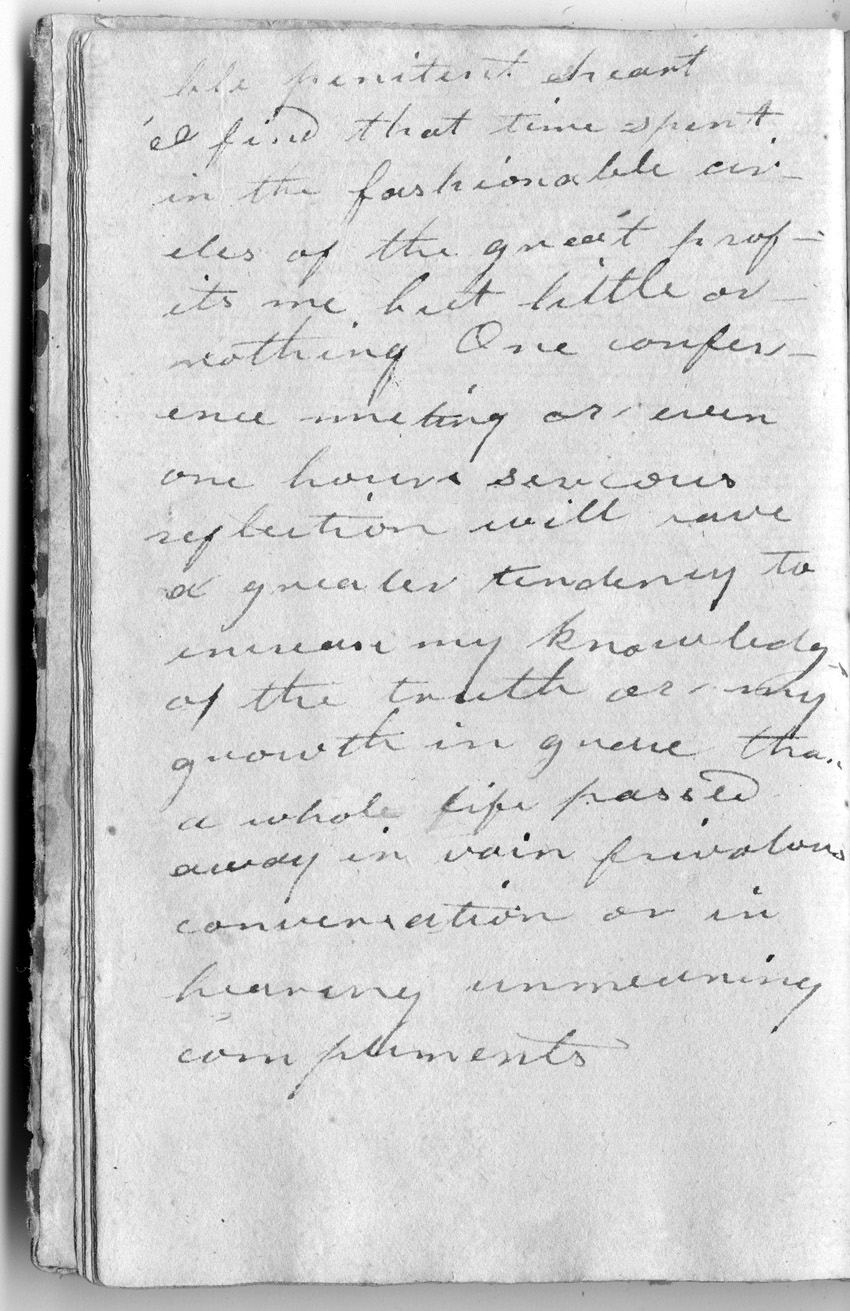 ble penitent heart
I find that time spent
in the fashionable cir-
cles of the great prof-
its me but little or-
nothing One confer-
ence meeting or even
one hours serious
reflection will have
a greater tendency to
increase my knowledg
of the truth or my
growth in grace than
a whole life passed
away in vain frivolous
conversation or in
hearing unmeaning
compliments